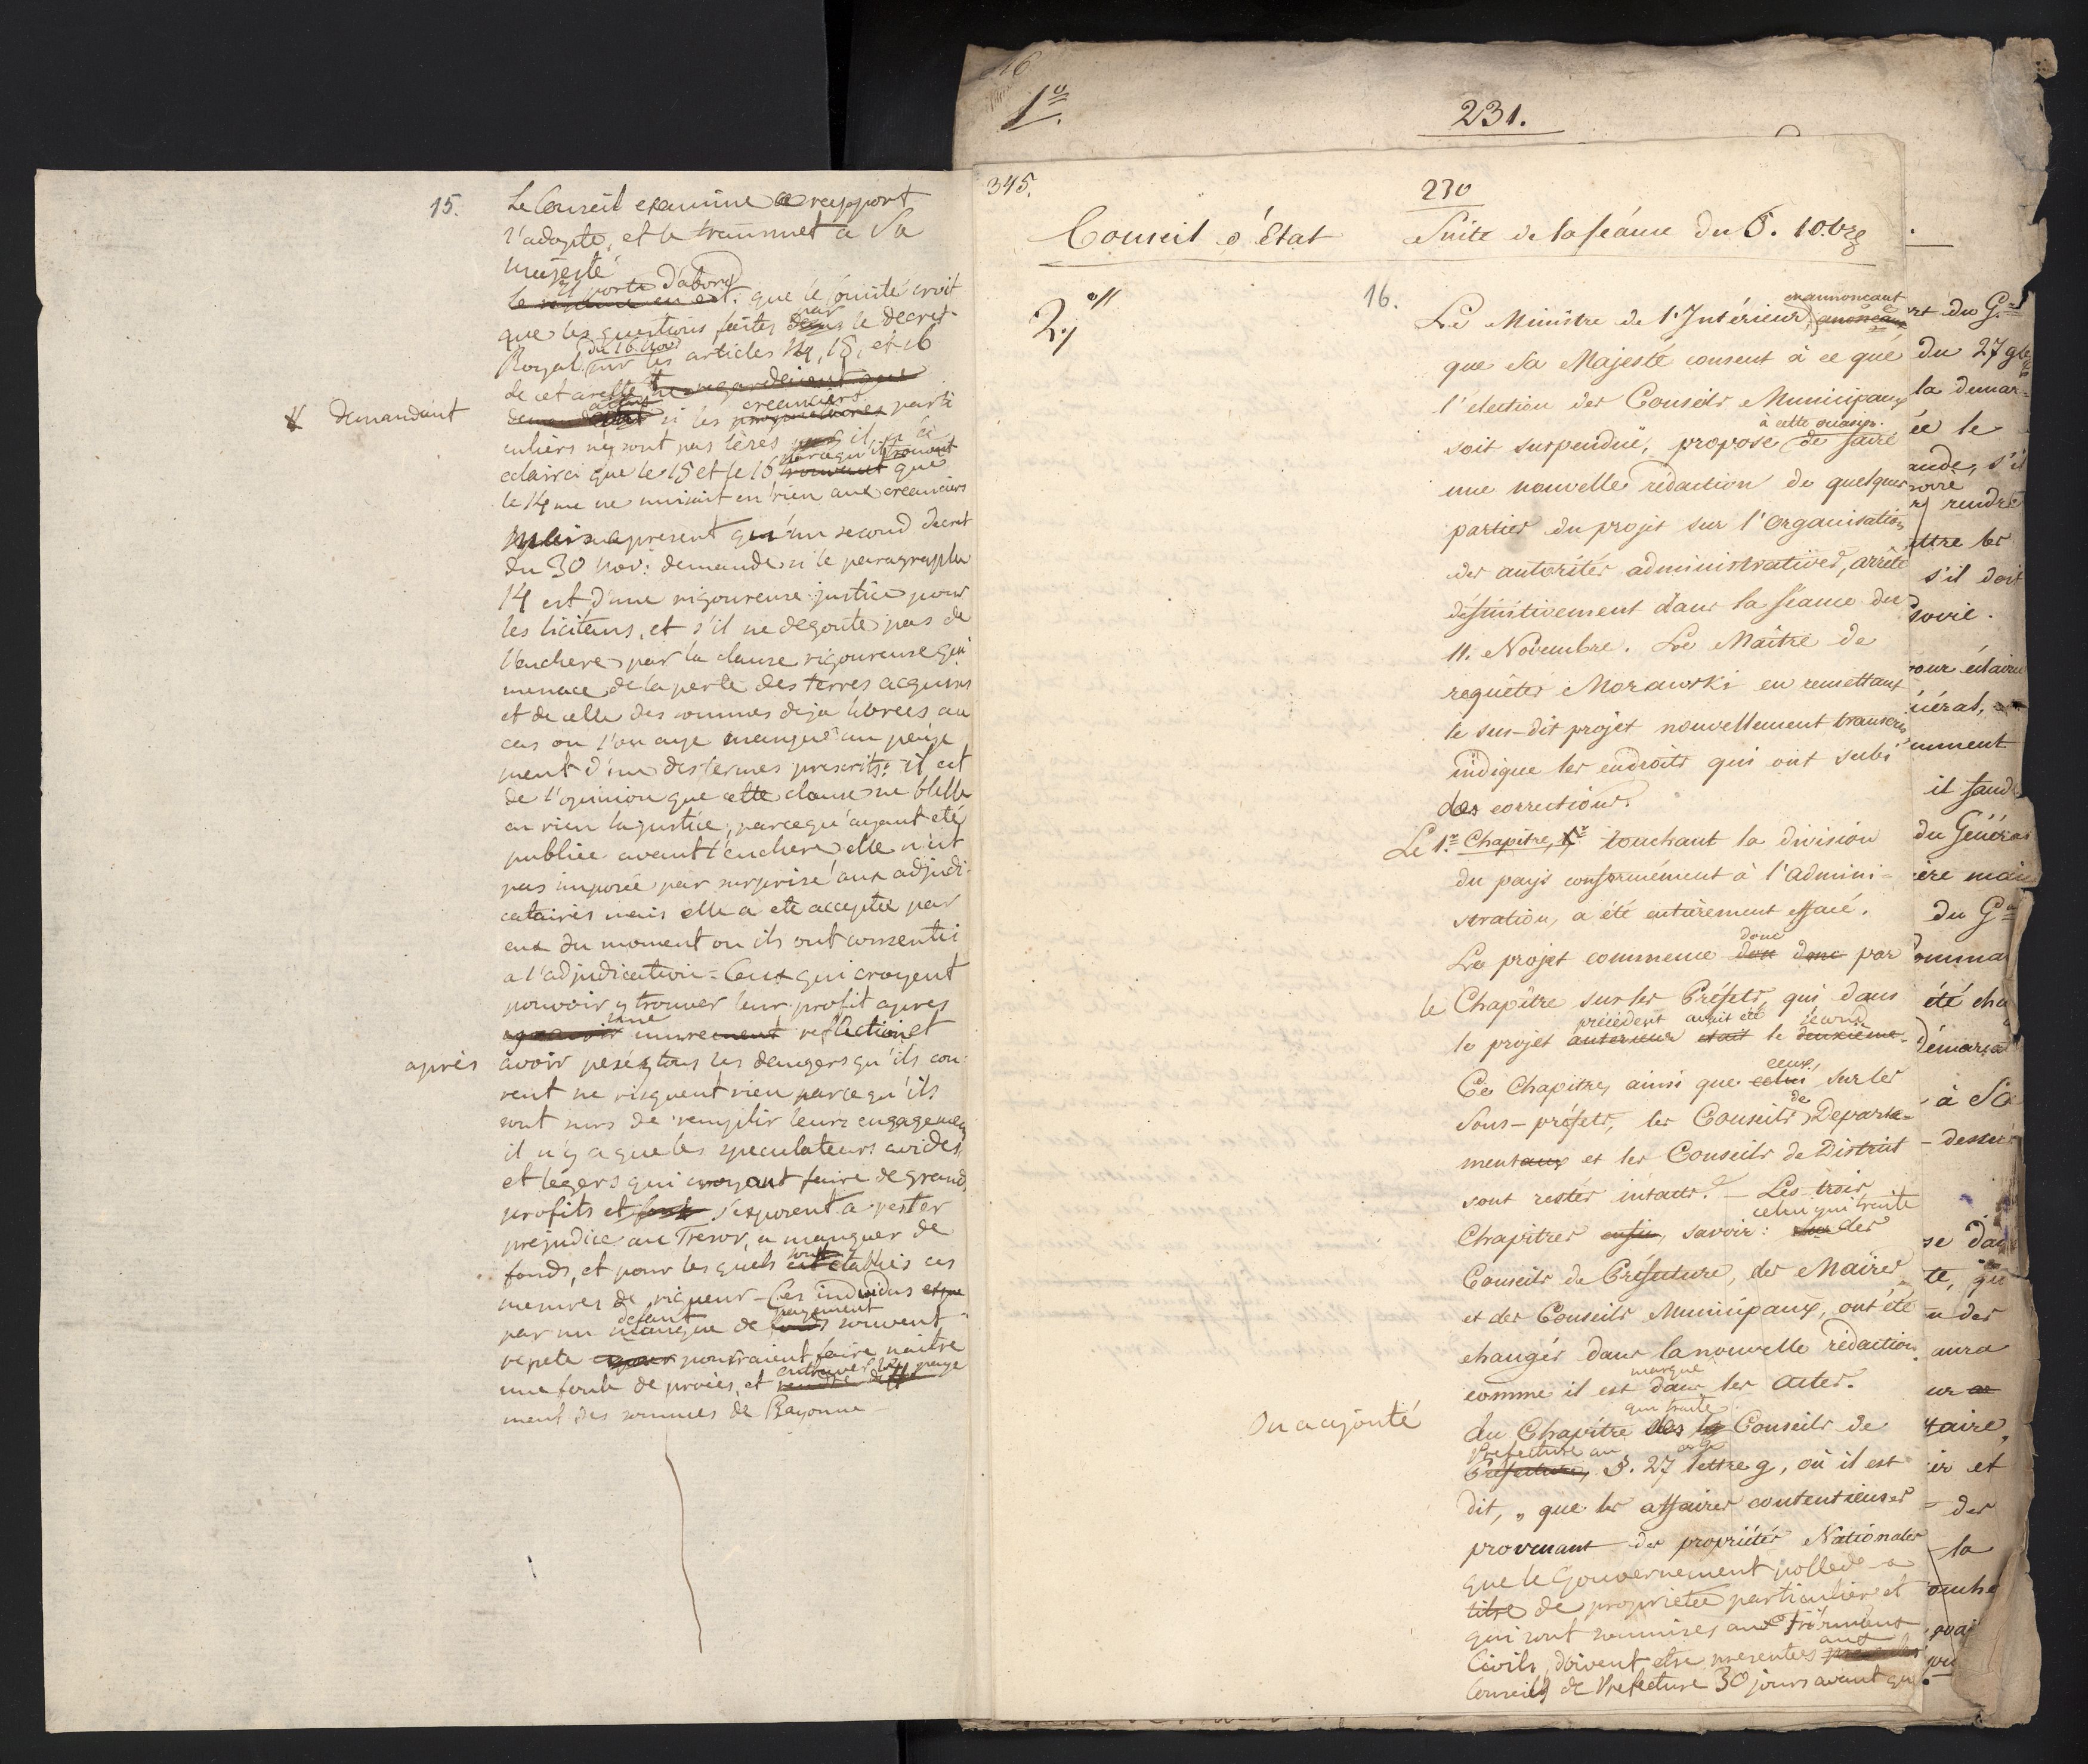 15.
Le Conseil examine ce rapport
l'adopte, et le transmet a Sa
majesté
Il porte d'abord
le resumé en est: que le comité croit
que les questions faites dans par le decret
Royal du 16 Nov: sur les articles 14, 15, et 16
de cet arrêté ne regardoient que
demandant
si les proprietaires creanciers parti
culiers n'y sont pas lèzés il a
eclairci que le 15 et le 16 parcequ'ils que
le 14me ne nuisait en rien aux creanciers
mais apresent qu'un second decret
du 30 Nov: demande si le paragraphe
14 est d'une rigoureuse justice pour
les licitans, et s'il ne degoute pas de
l'enchere par la clause rigoureuse qui
menace de la perte des terres acquises
et de celle des sommes deja livrees au
cas ou l'on aye manqué au paije
ment d'un des termes prescrits; il est
de l'opinion que cette clause ne blesse
en rien la justice, parcequ'ayant eté
publiée avant l'enchere elle n'est
pas imposée par surprise aux adjudi-
cataires mais elle a eté acceptée par
eux du moment ou ils ont consenti
a l'adjudication = Ceux qui croyent
pouvoir y trouver leur profit apres
une murement reflection et
après
avoir pesés tous les dangers qu'ils cou-
rent ne risquent rien parcequ'ils
sont surs de remplir leurs engagemens
il n'y a que les speculateurs avides
et legers qui croyant faire de grands
profits et s'exposent a porter
prejudice au Tresor, a manquer de
fonds, et pour les quels sont etablies ces
mesures de rigueur - Ces individus
par un manque defaut de payement souvent
repeté pourraient faire naitre
une foule de procès, et entraver le paye
ment des sommes de Bayonne -
1º
231.
345.
230
Conseil d'État Suite de la séance du 6. 10.bre
2.
16.
Le Ministre de l'Intérieur, en annoncant
que Sa Majesté consent à ce que
l'election des Conseils Municipaux
soit suspenduë, propose à cette occasion de faire
une nouvelle rédaction de quelques
parties du projet sur l'Organisation
des autorités administratives, arrêté
définitivement dans la séance du
11. Novembre. Le Maître de
requêtes Morawski en remettant
le sus-dit projet nouvellement transcris
indique les endroits qui ont subi
des corrections.
Le 1.r Chapitre, touchant la division
du pays conformément à l'Admini-
stration, a été entièrement effacé.
Le projet commence donc par
le Chapître sur les Préfets, qui dans
le projet anterieur précédent avait été était le second deuxième.
Ce Chapitre, ainsi que celui ceux, sur les
Sous-préfets, les Conseils de Departe-
mentaux et les Conseils de District
sont restés intacts. - Les trois
Chapitres enfin, savoir: celui qui traite des
Conseils de Préfecture, des Maires
et des Conseils Municipaux, ont été
changés dans la nouvelle rédaction
comme il est marqué dans les actes.
On a ajouté
au Chapitre qui traite des Conseils de
Prefecture au
Préfecture, §. 27 lettre g, où il est
dit, „ que les affaires contentieuses
provenant des propriétés Nationales
que le Gouvernement possede a
titre de proprieteé particuliere et
qui sont soumises aux
Civils, doivent etre presentées aux
Conseils de Prefecture 30 jours avant qu'
du 27
la demar-
ée le
rendre
s'il doit
pour éclairer
il faud
du Général
ière mais
été cha
à Sa
aura
taire,
ir et
des
la